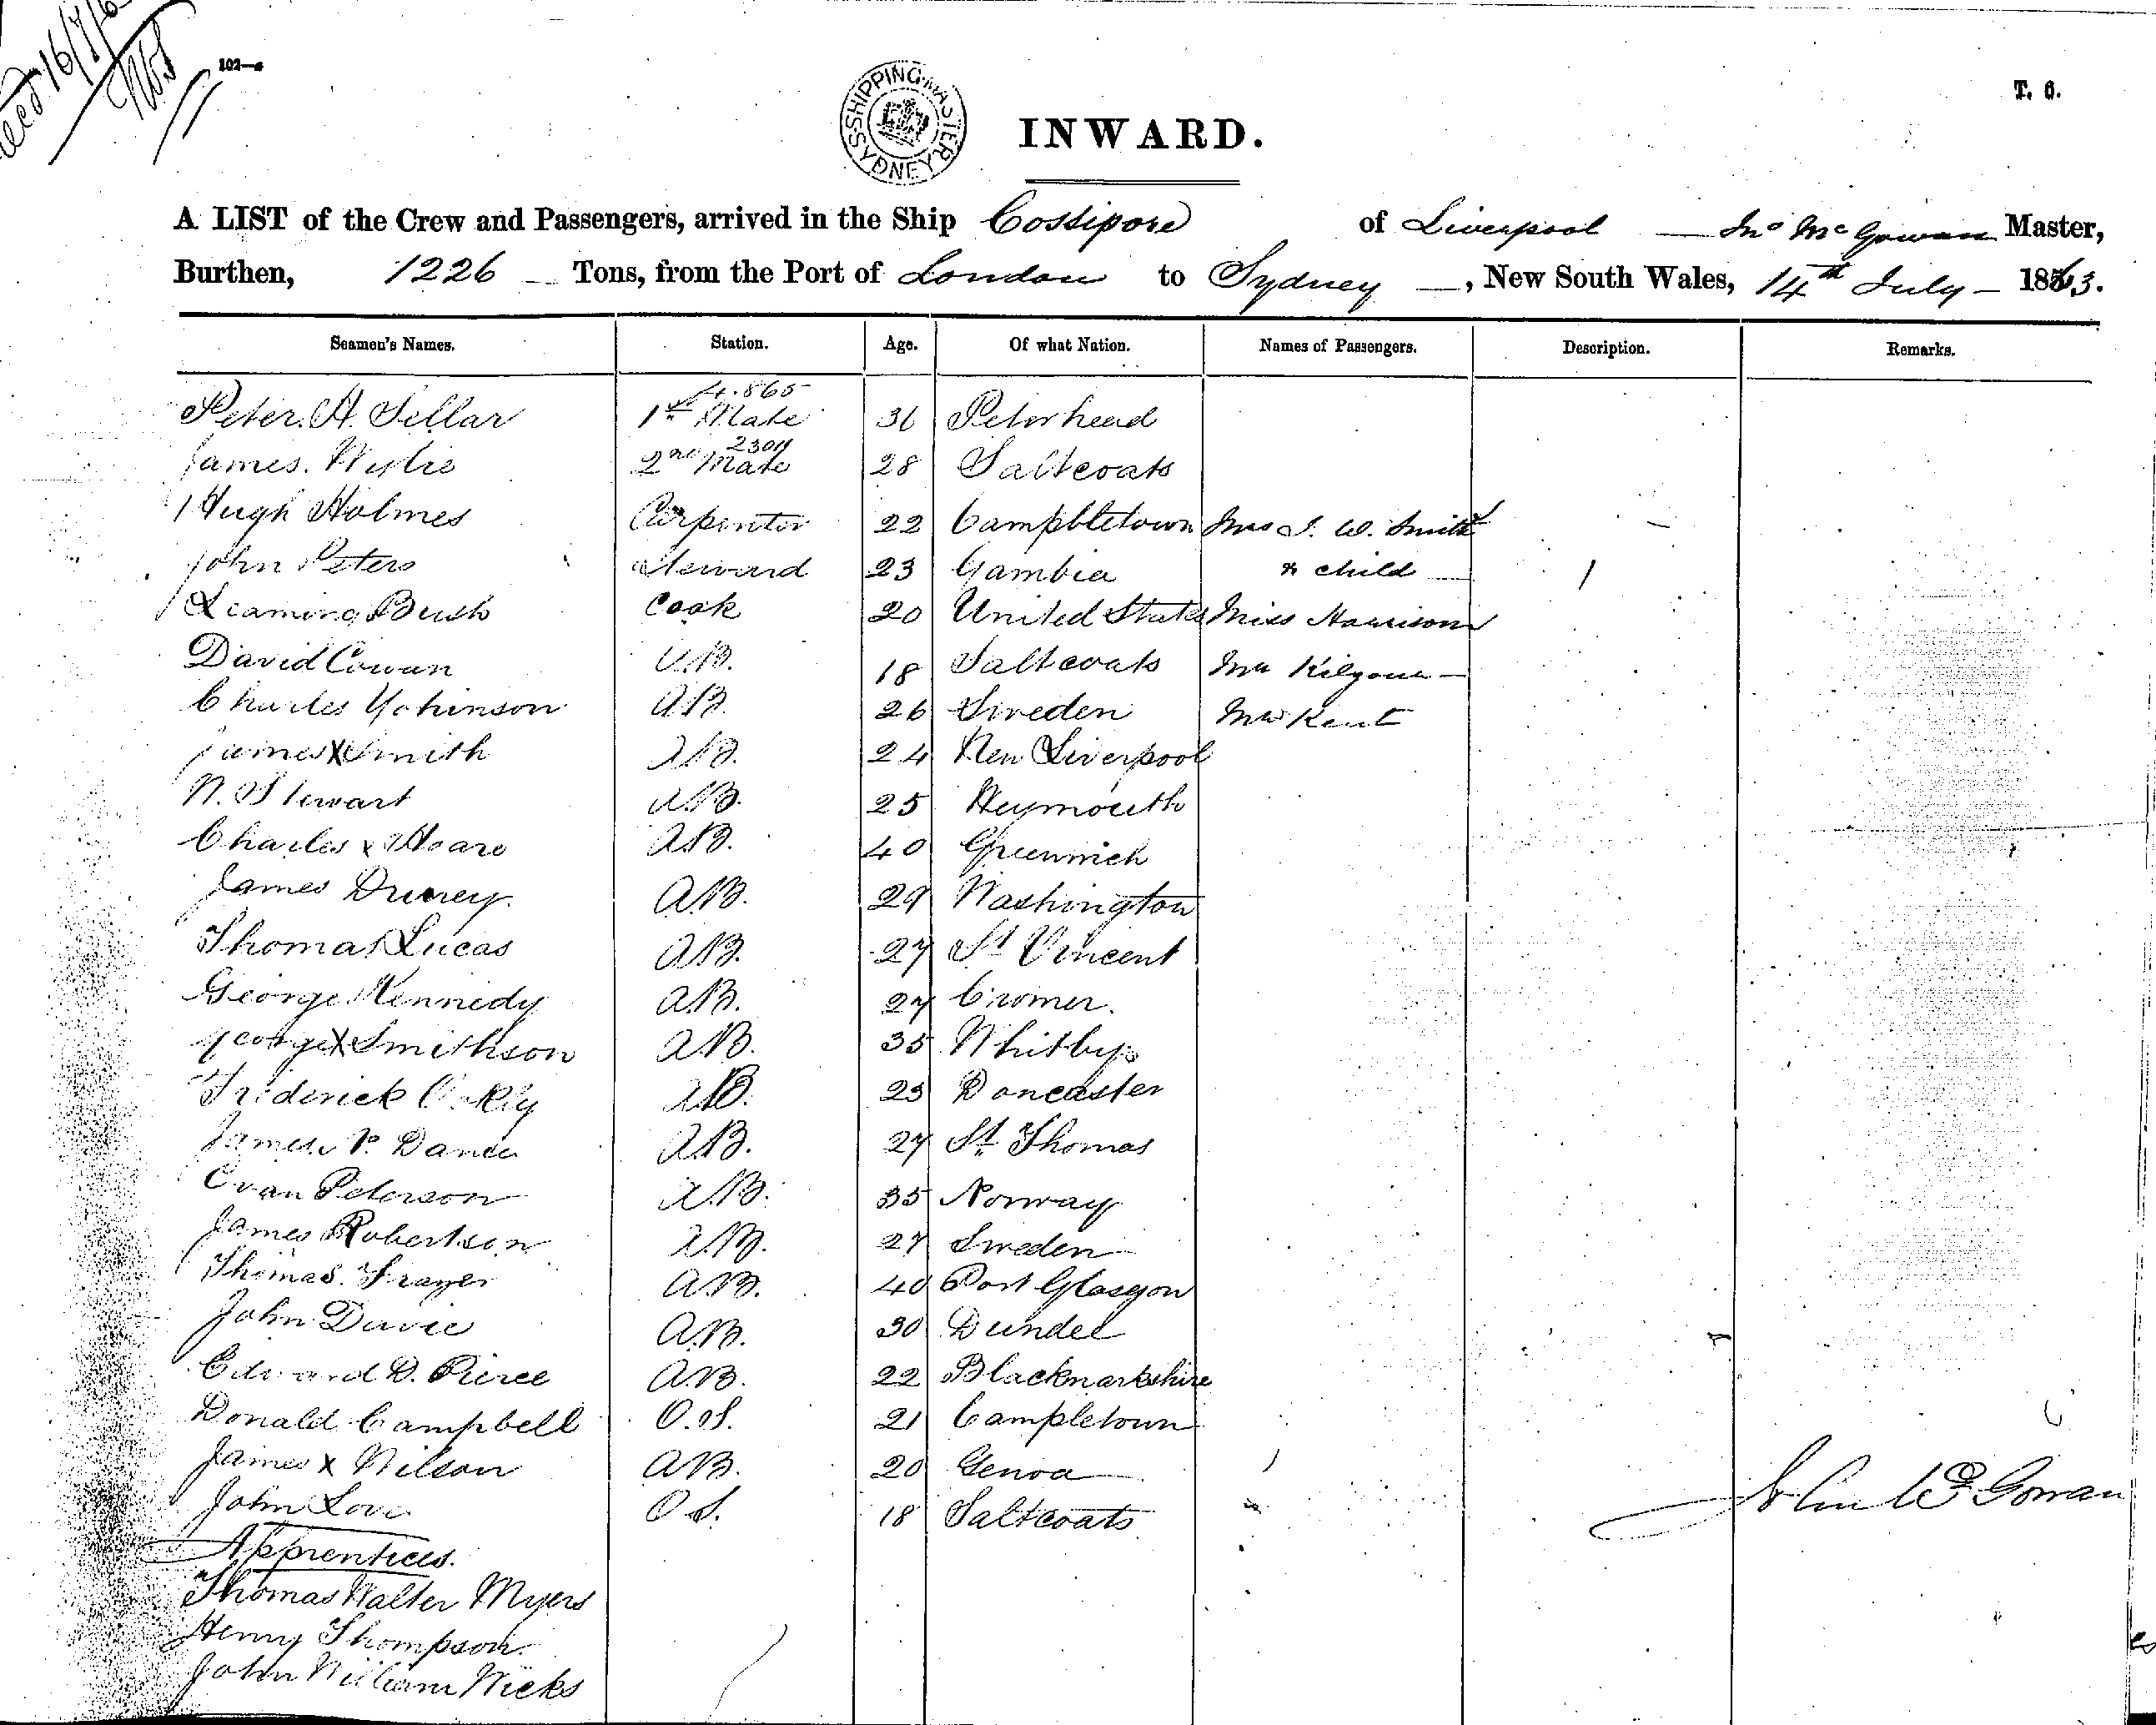 102—a
T. 6.
SHIPPING MASTER SYDNEY
INWARD.
A LIST of the Crew and Passengers, arrived in the Ship Cossipore of Liverpool — Jno McGowan Master,
Burthen, 1226 Tons, from the Port of London to Sydney —, New South Wales, 14th July — 1863.
Seamen's Names. Station. Age. Of what Nation. Names of Passengers. Description. Remarks.
4.865
Peter A. Sellar 1st Mate 36 Peterhead
2304
James Wylie 2nd Mate 28 Saltcoats
Hugh Holmes Carpenter 22 Campbletown Mrs J. W. Smith
John Peters Steward 23 Gambia & child 1
Leaming Bush Cook 20 United States Miss Harrison
David Cowan A.B. 18 Saltcoats Mr Kilgour
Charles A.B. 26 Sweden Mr Kent
James X Smith A.B. 24 New Liverpool
N. Stewart A.B. 25 Weymouth
Charles x Hoare A.B. 40 Greenwich
James A.B. 29 Washington
Thomas Lucas A.B. 27 St Vincent
George Kennedy A.B. 27 Cromer.
George X Smithson A.B. 35 Whitby
Frederick A.B. 23 Doncaster
James P. A.B. 27 St. Thomas
Evan Peterson A.B. 35 Norway
James Robertson A.B. 27 Sweden
Thomas Frayer A.B. 40 Port Glasgow
John Davie A.B. 30 Dundee
Edward D. Pierce A.B. 22
Donald Campbell O.S. 21 Campletown
James x Wilson A.B. 20 Genoa
John Love O.S. 18 Saltcoats
John McGowan
Apprentices.
Thomas Walter Myers
Henry Thompson.
John William Wicks